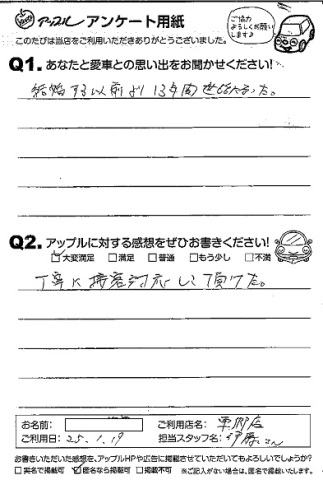 アップル アンケート用紙
ご協力
よろしくお願い
します♪
このたびは当店をご利用いただきありがとうございました。
Q1. あなたと愛車との思い出をお聞かせください!
結婚する以前より13年間
Q2. アップルに対する感想をぜひお書きください!
☑大変満足 □満足 □普通 □もう少し □不満
丁寧に接客対応して頂けた。
お名前:
ご利用店名:
ご利用日: 25.1.19
担当スタッフ名: 伊藤さん
お書きいただいた感想を、アップルHPや広告に掲載させていただいてもよろしいでしょうか?
□実名で掲載可 ☑匿名なら掲載可 □掲載不可 ※ご記入がない場合は、匿名で掲載いたします。